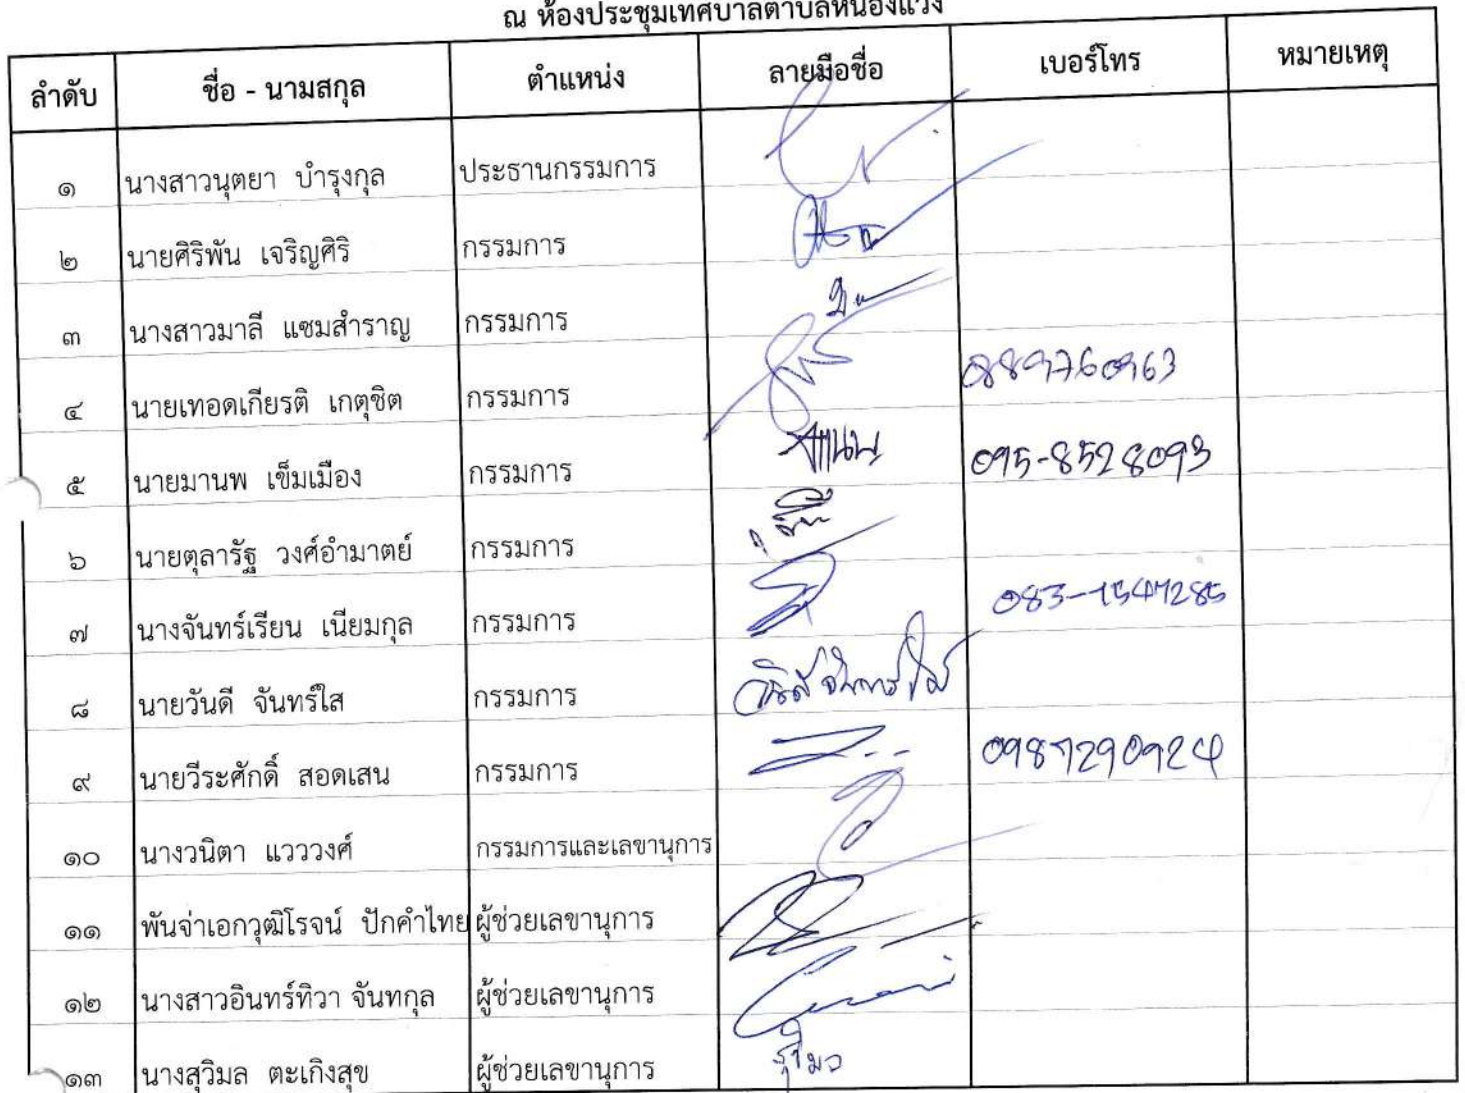 ณ ห้องประชุมเทศบาลตำบลหนองแวง
ลำดับ ชื่อ - นามสกุล ตำแหน่ง ลายมือชื่อ เบอร์โทร หมายเหตุ
๑ นางสาวนุตยา บำรุงกุล ประธานกรรมการ
๒ นายศิริพัน เจริญศิริ กรรมการ
๓ นางสาวมาลี แซมสำราญ กรรมการ
๔ นายเทอดเกียรติ เกตุชิต กรรมการ 0889760963
๕ นายมานพ เข็มเมือง กรรมการ 095-8528093
๖ นายตุลารัฐ วงศ์อำมาตย์ กรรมการ
๗ นางจันทร์เรียน เนียมกุล กรรมการ 083-1547285
๘ นายวันดี จันทร์ใส กรรมการ
๙ นายวีระศักดิ์ สอดเสน กรรมการ 0987290924
๑๐ นางวนิตา แวววงศ์ กรรมการและเลขานุการ
๑๑ พันจ่าเอกวุฒิโรจน์ ปักคำไทย ผู้ช่วยเลขานุการ
๑๒ นางสาวอินทร์ทิวา จันทกุล ผู้ช่วยเลขานุการ
๑๓ นางสุวิมล ตะเกิงสุข ผู้ช่วยเลขานุการ